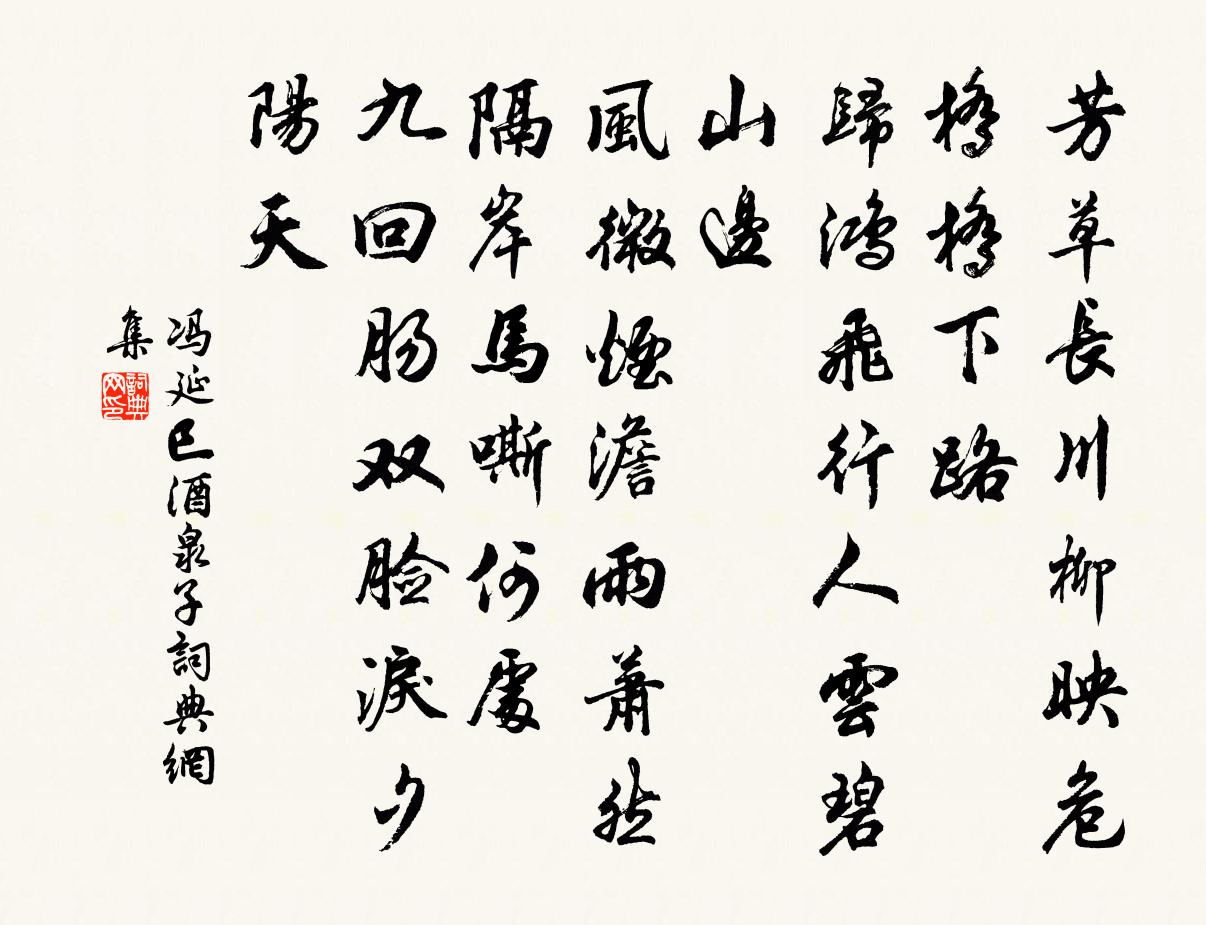 芳草長川柳映危
橋橋下路
歸鴻飛行人雲碧
山邊
風微煙澹雨蕭然
隔岸馬嘶何處
九回腸双脸淚夕
陽天
冯延巳酒泉子詞典網
集
詞典网印